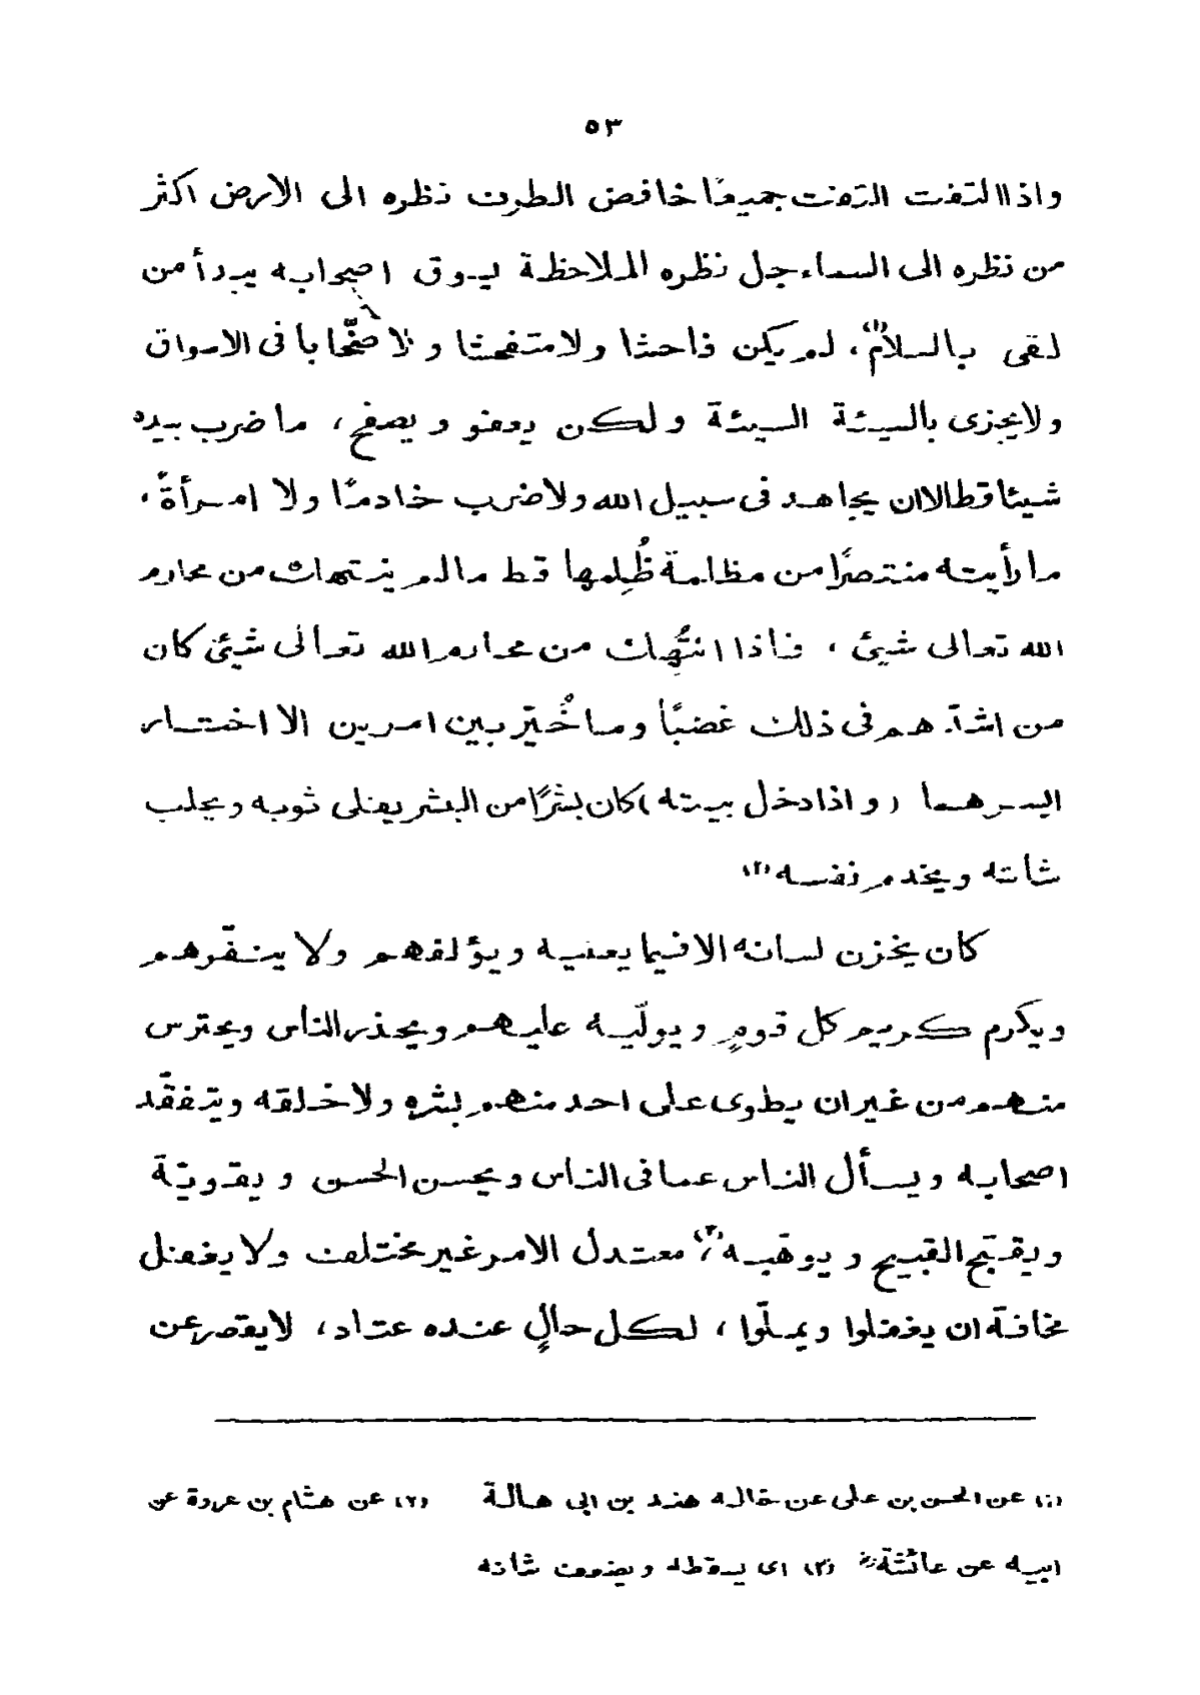 ٥٣
واذا التفت التفت جميعًا خافض الطرف نظره الى الارض اكثر
من نظره الى السماء جل نظره الملاحظة يسوق اصحابه يبدأ من
لقى بالسلام(١)، لم يكن فاحشا ولا متفحشا ولا صخّابا فى الاسواق
ولا يجزى بالسيئة السيئة ولكن يعفو ويصفح، ما ضرب بيده
شيئا قط الا ان يجاهد فى سبيل الله ولا ضرب خادمًا ولا امرأةً،
ما رأيته منتصرًا من مظلمة ظُلِمها قط ما لم ينتهك من محارم
الله تعالى شيئ، فاذا انتُهِك من محارم الله تعالى شيئ كان
من اشدّهم فى ذلك غضبًا وما خُيّر بين امرين الا اختار
ايسرهما (واذا دخل بيته) كان بشرًا من البشر يفلى ثوبه ويحلب
شاته ويخدم نفسه(٢)
كان يخزن لسانه الا فيما يعنيه ويؤلفهم ولا ينفّرهم
ويكرم كريم كل قومٍ ويولّيه عليهم ويحذر الناس ويحترس
منهم من غير ان يطوى على احد منهم بشره ولا خلقه ويتفقّد
اصحابه ويسأل الناس عما فى الناس ويحسن الحسن ويقويّة
ويقبّح القبيح ويوهّيه(٣)، معتدل الامر غير مختلف ولا يغفل
مخافة ان يغفلوا ويملّوا، لكل حالٍ عنده عتاد، لا يقصر عن
(١) عن الحسن بن على عن خاله هند بن ابى هالة (٢) عن هشام بن عروة عن
ابيه عن عائشةؓ (٣) اى يسقطه ويضعف شانه